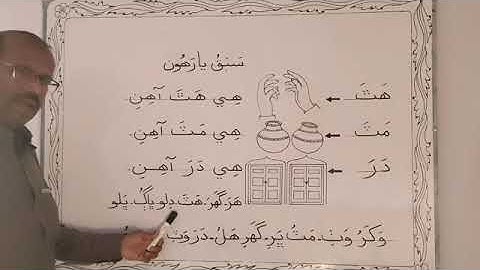 سَبَقُ يارَهُون
هَٿَ ← هِي هَٿَ آهِن.
مَٽَ ← هِي مَٽَ آهِن.
دَرَ ← هِي دَرَ آهِن.
هَرَ۔ گَهَرَ۔ هَٿَ۔ دِلو۔ ڀاڳُ۔ ڀَلو
وَکَرُ وَٺُ۔ مَٽُ ڀَرِ۔ گَهَرِ هَلُ۔ دَرَ